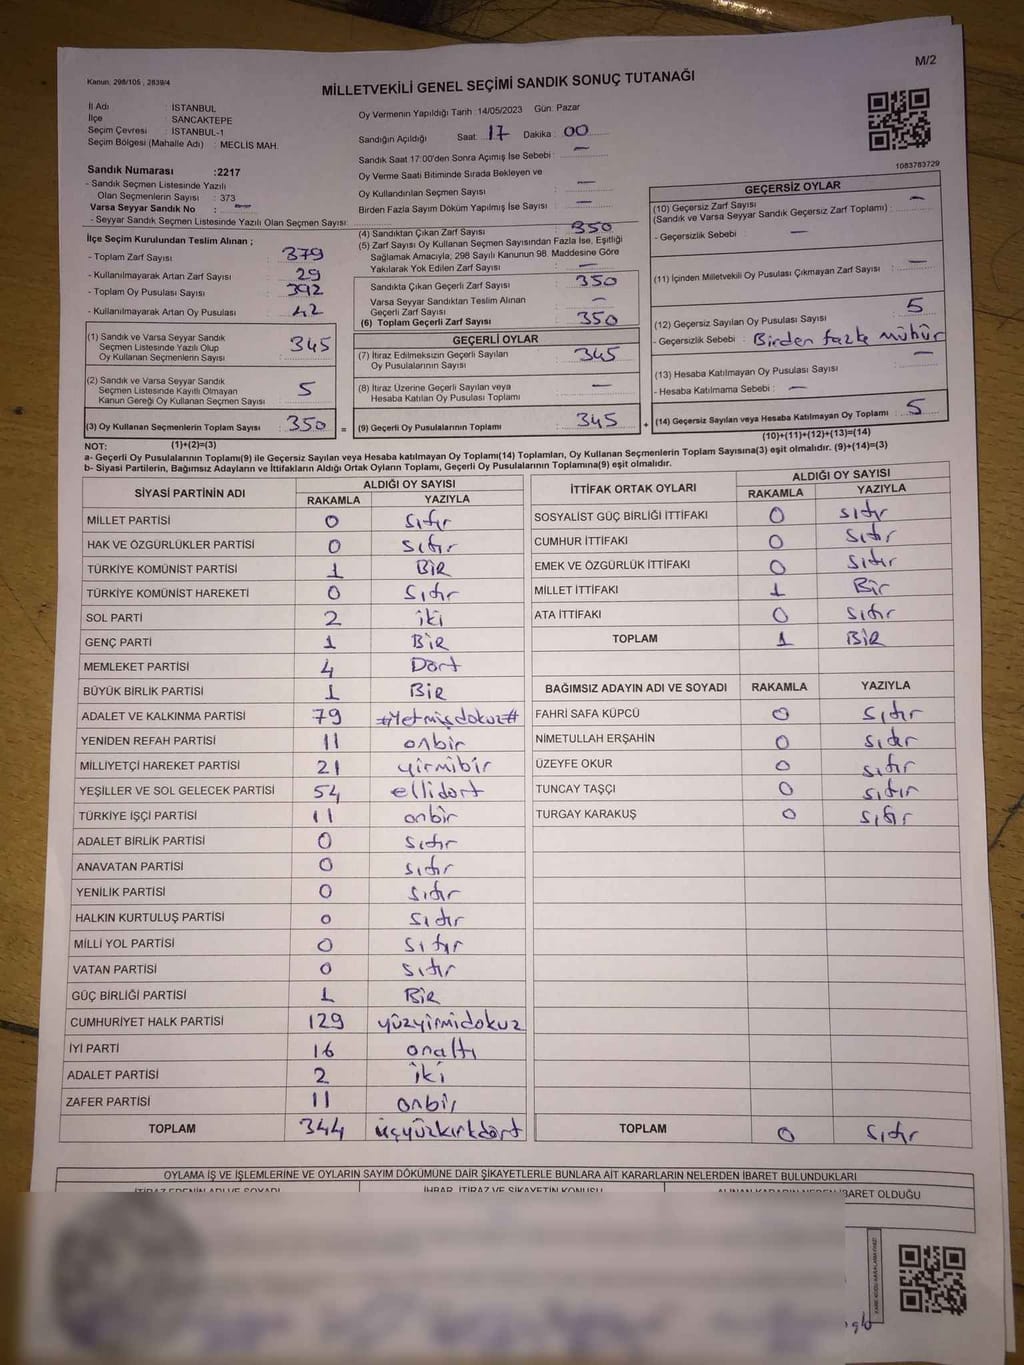 M/2
Kanun: 298/105 , 2839/4
MİLLETVEKİLİ GENEL SEÇİMİ SANDIK SONUÇ TUTANAĞI
İl Adı : İSTANBUL
İlçe : SANCAKTEPE
Seçim Çevresi : İSTANBUL-1
Seçim Bölgesi (Mahalle Adı) : MECLİS MAH.
Oy Vermenin Yapıldığı Tarih :14/05/2023 Gün: Pazar
Sandığın Açıldığı Saat: 17 Dakika : 00
Sandık Saat 17:00'den Sonra Açımış İse Sebebi : —
Oy Verme Saati Bitiminde Sırada Bekleyen ve
Oy Kullandırılan Seçmen Sayısı : —
Birden Fazla Sayım Döküm Yapılmış İse Sayısı : —
1083783729
Sandık Numarası :2217
- Sandık Seçmen Listesinde Yazılı
Olan Seçmenlerin Sayısı : 373
Varsa Seyyar Sandık No : —
- Seyyar Sandık Seçmen Listesinde Yazılı Olan Seçmen Sayısı:
İlçe Seçim Kurulundan Teslim Alınan ;
- Toplam Zarf Sayısı : 379
- Kullanılmayarak Artan Zarf Sayısı : 29
- Toplam Oy Pusulası Sayısı : 392
- Kullanılmayarak Artan Oy Pusulası : 42
(1) Sandık ve Varsa Seyyar Sandık
Seçmen Listesinde Yazılı Olup
Oy Kullanan Seçmenlerin Sayısı : 345
(2) Sandık ve Varsa Seyyar Sandık
Seçmen Listesinde Kayıtlı Olmayan
Kanun Gereği Oy Kullanan Seçmen Sayısı : 5
(3) Oy Kullanan Seçmenlerin Toplam Sayısı : 350 =
(4) Sandıktan Çıkan Zarf Sayısı : 350
(5) Zarf Sayısı Oy Kullanan Seçmen Sayısından Fazla İse, Eşitliği
Sağlamak Amacıyla; 298 Sayılı Kanunun 98. Maddesine Göre
Yakılarak Yok Edilen Zarf Sayısı : —
Sandıkta Çıkan Geçerli Zarf Sayısı : 350
Varsa Seyyar Sandıktan Teslim Alınan
Geçerli Zarf Sayısı : —
(6) Toplam Geçerli Zarf Sayısı : 350
GEÇERLİ OYLAR
(7) İtiraz Edilmeksizin Geçerli Sayılan
Oy Pusulalarının Sayısı : 345
(8) İtiraz Üzerine Geçerli Sayılan veya
Hesaba Katılan Oy Pusulası Toplamı : —
(9) Geçerli Oy Pusulalarının Toplamı : 345 +
GEÇERSİZ OYLAR
(10) Geçersiz Zarf Sayısı
(Sandık ve Varsa Seyyar Sandık Geçersiz Zarf Toplamı) : —
- Geçersizlik Sebebi : —
(11) İçinden Milletvekili Oy Pusulası Çıkmayan Zarf Sayısı : —
(12) Geçersiz Sayılan Oy Pusulası Sayısı : 5
- Geçersizlik Sebebi : Birden fazla mühür
(13) Hesaba Katılmayan Oy Pusulası Sayısı : —
- Hesaba Katılmama Sebebi : —
(14) Geçersiz Sayılan veya Hesaba Katılmayan Oy Toplamı : 5
NOT: (1)+(2)=(3) (10)+(11)+(12)+(13)=(14)
a- Geçerli Oy Pusulalarının Toplamı(9) ile Geçersiz Sayılan veya Hesaba katılmayan Oy Toplamı(14) Toplamları, Oy Kullanan Seçmenlerin Toplam Sayısına(3) eşit olmalıdır. (9)+(14)=(3)
b- Siyasi Partilerin, Bağımsız Adayların ve İttifakların Aldığı Ortak Oyların Toplamı, Geçerli Oy Pusulalarının Toplamına(9) eşit olmalıdır.
SİYASİ PARTİNİN ADI ALDIĞI OY SAYISI
RAKAMLA YAZIYLA
MİLLET PARTİSİ 0 sıfır
HAK VE ÖZGÜRLÜKLER PARTİSİ 0 sıfır
TÜRKİYE KOMÜNİST PARTİSİ 1 BİR
TÜRKİYE KOMÜNİST HAREKETİ 0 sıfır
SOL PARTİ 2 iki
GENÇ PARTİ 1 BİR
MEMLEKET PARTİSİ 4 Dört
BÜYÜK BİRLİK PARTİSİ 1 BİR
ADALET VE KALKINMA PARTİSİ 79 #Yetmişdokuz#
YENİDEN REFAH PARTİSİ 11 onbir
MİLLİYETÇİ HAREKET PARTİSİ 21 yirmibir
YEŞİLLER VE SOL GELECEK PARTİSİ 54 ellidört
TÜRKİYE İŞÇİ PARTİSİ 11 onbir
ADALET BİRLİK PARTİSİ 0 sıfır
ANAVATAN PARTİSİ 0 sıfır
YENİLİK PARTİSİ 0 sıfır
HALKIN KURTULUŞ PARTİSİ 0 sıfır
MİLLİ YOL PARTİSİ 0 sıfır
VATAN PARTİSİ 0 sıfır
GÜÇ BİRLİĞİ PARTİSİ 1 BİR
CUMHURİYET HALK PARTİSİ 129 yüzyirmidokuz
İYİ PARTİ 16 onaltı
ADALET PARTİSİ 2 iki
ZAFER PARTİSİ 11 onbir
TOPLAM 344 üçyüzkırkdört
İTTİFAK ORTAK OYLARI ALDIĞI OY SAYISI
RAKAMLA YAZIYLA
SOSYALİST GÜÇ BİRLİĞİ İTTİFAKI 0 sıfır
CUMHUR İTTİFAKI 0 sıfır
EMEK VE ÖZGÜRLÜK İTTİFAKI 0 sıfır
MİLLET İTTİFAKI 1 Bir
ATA İTTİFAKI 0 sıfır
TOPLAM 1 BİR
BAĞIMSIZ ADAYIN ADI VE SOYADI RAKAMLA YAZIYLA
FAHRİ SAFA KÜPCÜ 0 sıfır
NİMETULLAH ERŞAHİN 0 sıfır
ÜZEYFE OKUR 0 sıfır
TUNCAY TAŞÇI 0 sıfır
TURGAY KARAKUŞ 0 sıfır
TOPLAM 0 sıfır
OYLAMA İŞ VE İŞLEMLERİNE VE OYLARIN SAYIM DÖKÜMÜNE DAİR ŞİKAYETLERLE BUNLARA AİT KARARLARIN NELERDEN İBARET BULUNDUKLARI
İTİRAZ EDENİN ADI VE SOYADI İHBAR, İTİRAZ VE ŞİKAYETİN KONUSU ALINAN KARARIN NEDEN İBARET OLDUĞU